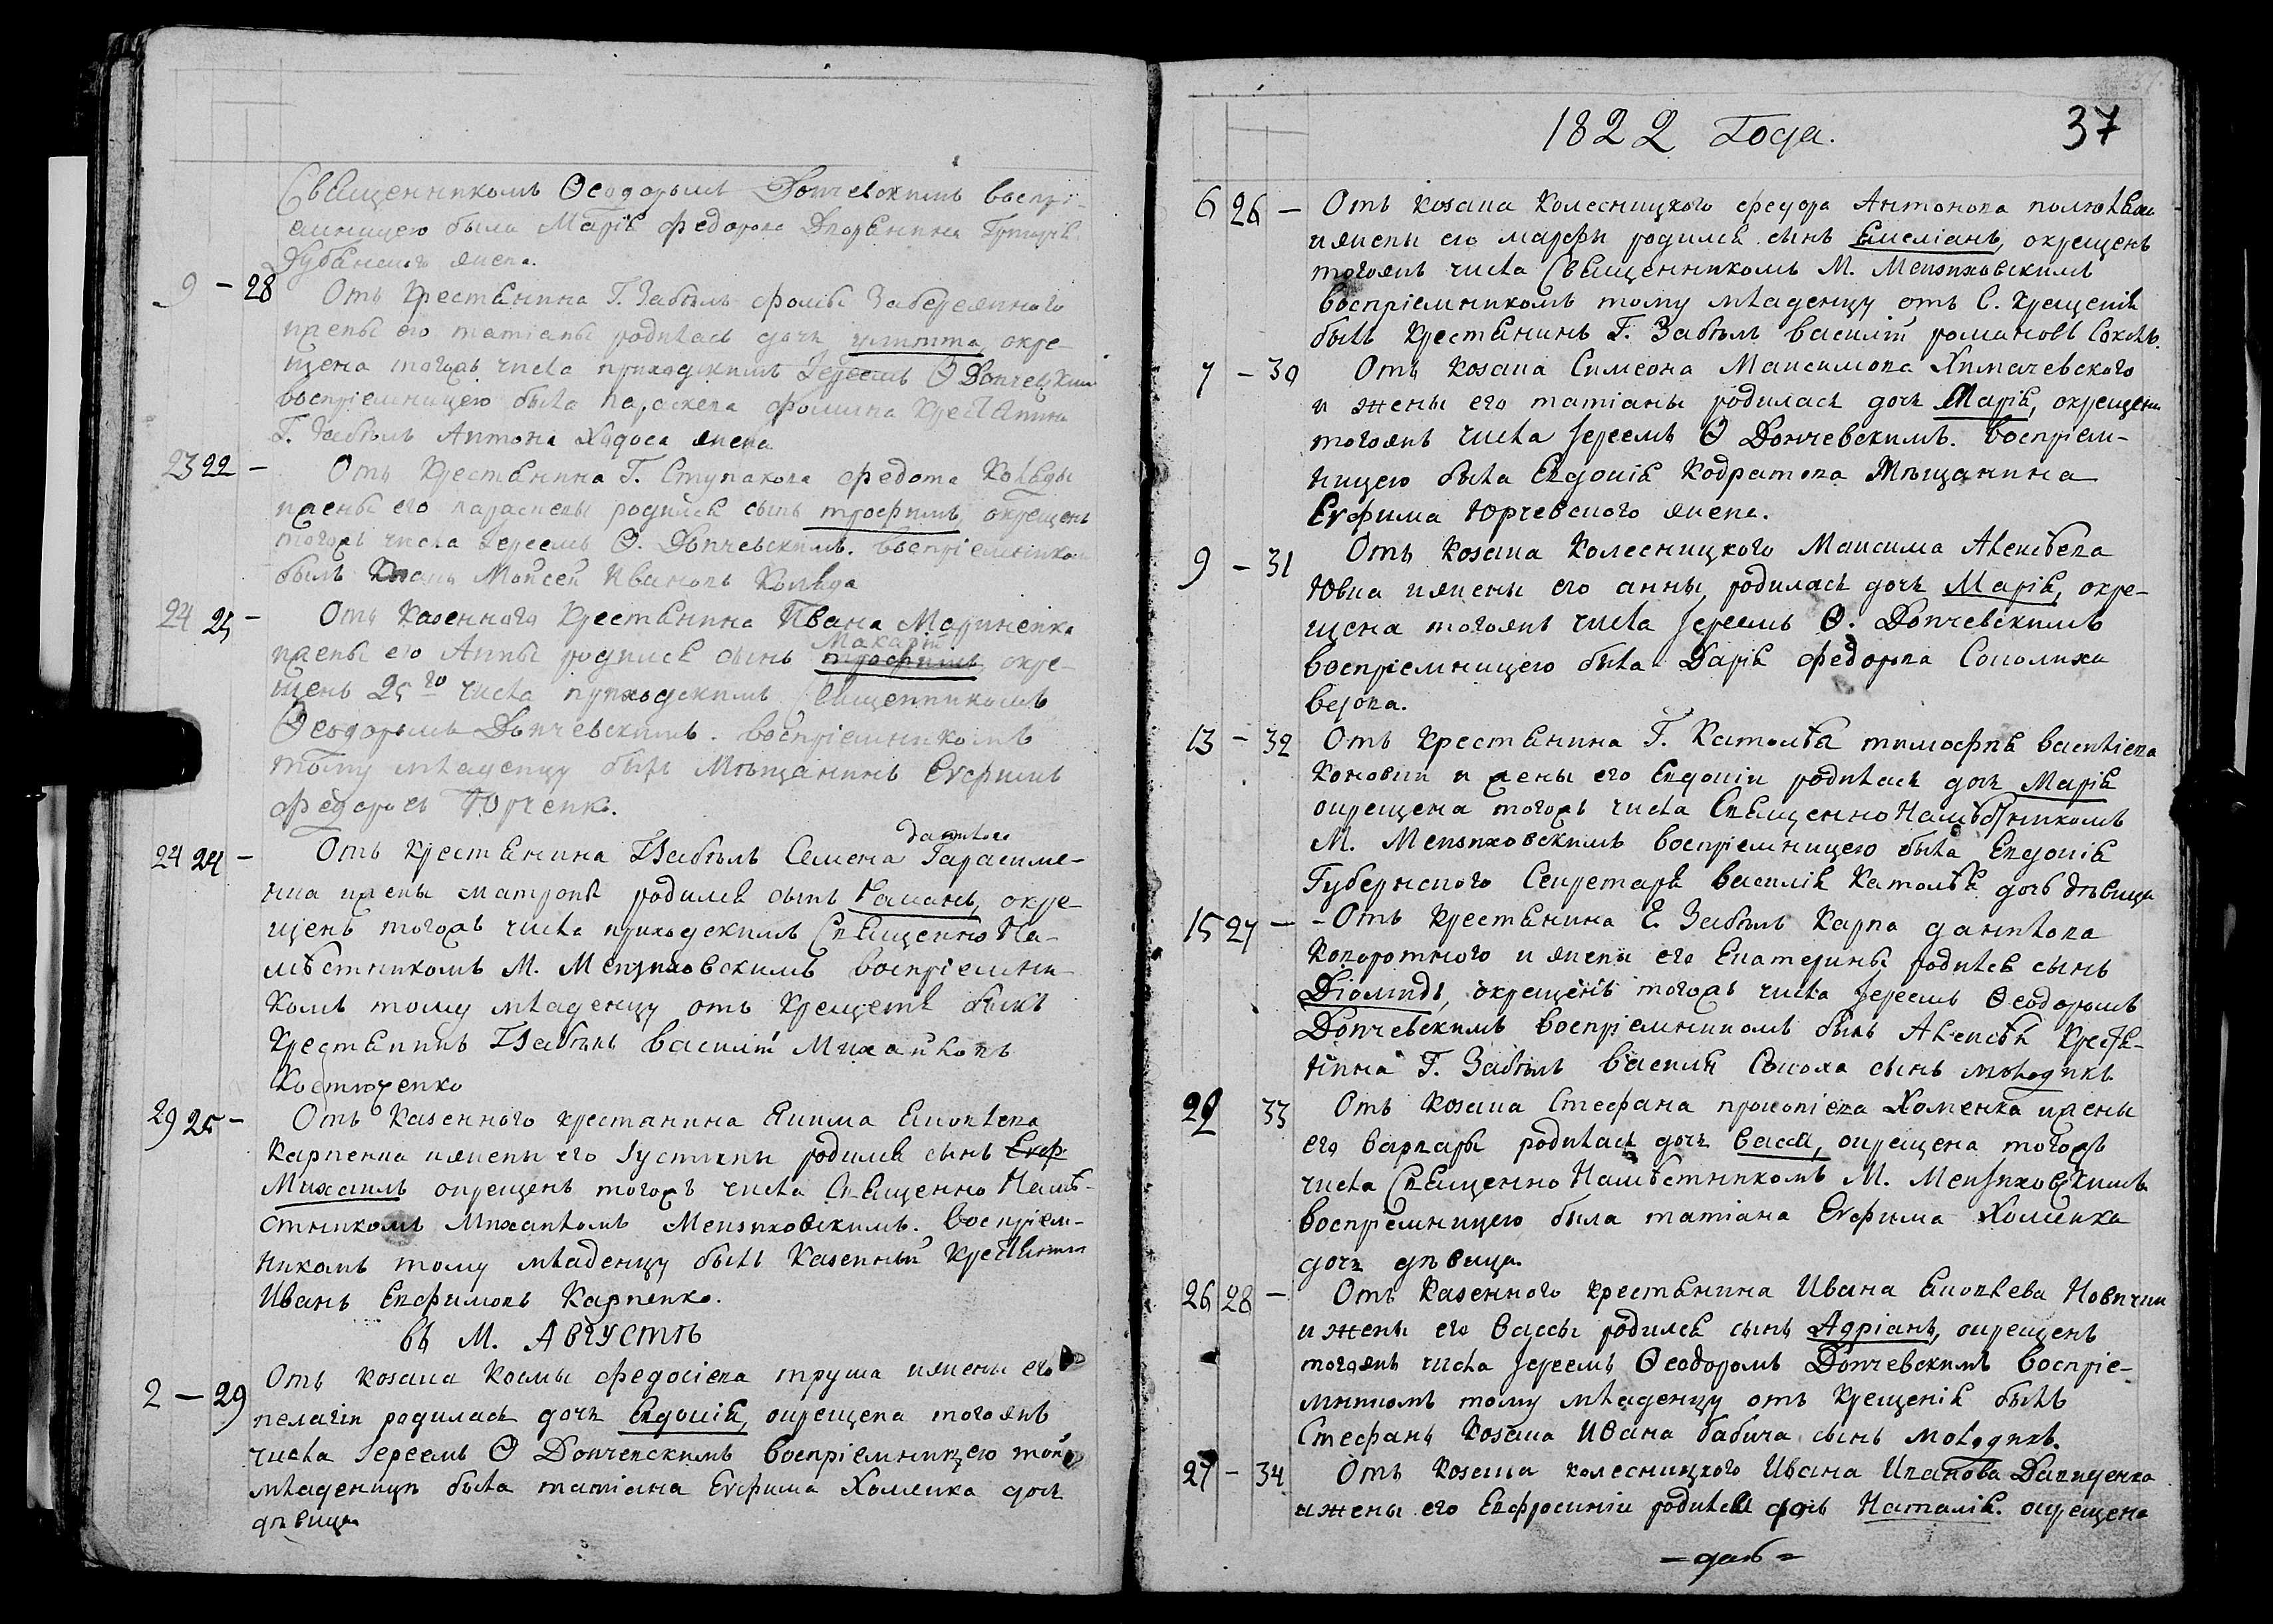 Священникомъ Ѳеодоромъ Дончевскимъ воспрі-
емницею была Марія Федорова Дворянина Григорія
жена.
9 – 28 Отъ крестянина Г. Забѣлъ Фомы Забережного
и жены его татіаны родилась дочь окре-
щена тогожъ числа приходскимъ Іереемъ Ѳ Дончевским
воспріемницею была параскева Фомина крестянина
Г. Забѣлъ Антона Ходоса жена
23 22 – Отъ крестянина Г. Ступакова Федота Коляды
и жены его параскевы родился сынъ трофимъ, окрещенъ
тогожъ числа Іереемъ Ѳ. Дончевскимъ. воспріемником
былъ Козакъ Мойсей Ивановъ Коляда
24 25 – Отъ Казенного крестянина Ивана Мариненка
Макарій
и жены его Анны родился сынъ трофимъ, окре-
щенъ 25го числа приходскимъ Священникомъ
Ѳеодоромъ Дончевскимъ. воспріемникомъ
тому младенцу былъ Мѣщанинъ Евфимъ
Федоровъ Юрченко.
данилова
24 24 – Отъ крестянина ГЗабѣлъ Семена Гарасиме-
нка и жены матроны родился сынъ окре-
щенъ тогожъ числа приходскимъ Священно На-
мѣстникомъ М. Мензиховскимъ воспріемни-
комъ тому младенцу отъ крещенія былъ
крестянинъ ГЗабѣлъ василій Михайловъ
Костюченко
29 25 – Отъ Казенного крестянина Якима Яковлева
Карпенка и жены его Іустины родился сынъ Евф
Михаилъ окрещенъ тогожъ числа Священно Намѣ-
стникомъ Михаиломъ Мензиховскимъ. воспріем-
никомъ тому младенцу былъ Казенный крестянин
Иванъ Евфимовъ Карпенко.
въ М. Августѣ
2 – 29 Отъ козака Космы Федосіева труша и жены его
пелагіи родилась дочь Евдокія, окрещена тогожъ
числа Іереемъ Ѳ Дончевскимъ воспріемницею той
младеницѣ была татіана Евфима Хоменка дочь
дѣвица
1822 Года. 37
6 26 – Отъ козака Колесницкого Федора Антонова
и жены его марфы родился сынъ Емеліанъ, окрещенъ
тогожъ числа Священникомъ М. Мензиховскимъ
воспріемникомъ тому младенцу отъ С. крещенія
былъ крестянинъ Г. Забѣлъ василій романовъ Соколъ.
7 – 30 Отъ козака Симеона Максимова Химачевского
и жены его татіаны родилась дочь Марія, окрещена
тогожъ числа Іереемъ Ѳ Дончевскимъ. воспріем-
ницею была Евдокія Кодратова Мѣщанина
Евфима Юрчевского жена.
9 – 31 Отъ козака Колесницкого Максима Алексѣева
Ювка и жены его анны, родилась дочь Марія, окре-
щена тогожъ числа Іереемъ Ѳ. Дончевскимъ
воспріемницею была Дарія Федорова Соколиха
вдова.
13 – 32 Отъ крестянина Г. Католѣя тимофѣя василіева
Коновии и жены его Евдокіи родилась дочь Марія
окрещена тогожъ числа Священно Намѣстникомъ
М. Мензиховскимъ воспріемницею была Евдокія
Губернского Секретаря василія Католѣя дочь дѣвица
15 27 – – Отъ крестянина Г. Забѣлъ Карпа данилова
Копоротного и жены его Екатерины родился сынъ
Діомидъ, окрещенъ тогожъ числа Іереемъ Ѳеодоромъ
Дончевскимъ воспріемникомъ былъ Алексѣй крестя-
нина Г. Забѣлъ василія Сокола сынъ молодикъ
29 33 Отъ козака Стефана прокопіева Хоменка и жены
его варвары родилась дочь васса, окрещена тогожъ
числа Священно Намѣстникомъ М. Мензиховскимъ
воспріемницею была татіана Евфима Хоменка
дочь дѣвица.
26 28 – Отъ Казенного крестянина Ивана Яковлева Новички
и жены его вассы родился сынъ Адріанъ, окрещенъ
тогожъ числа Іереемъ Ѳеодоромъ Дончевскимъ воспріе-
мникомъ тому младенцу отъ крещенія былъ
Стефанъ козака Ивана бабича сынъ молодикъ.
27 – 34 Отъ козака колесницкого Ивана Иванова Давиденка
и жены его Евфросиніи родилась дочь Наталія. окрещена